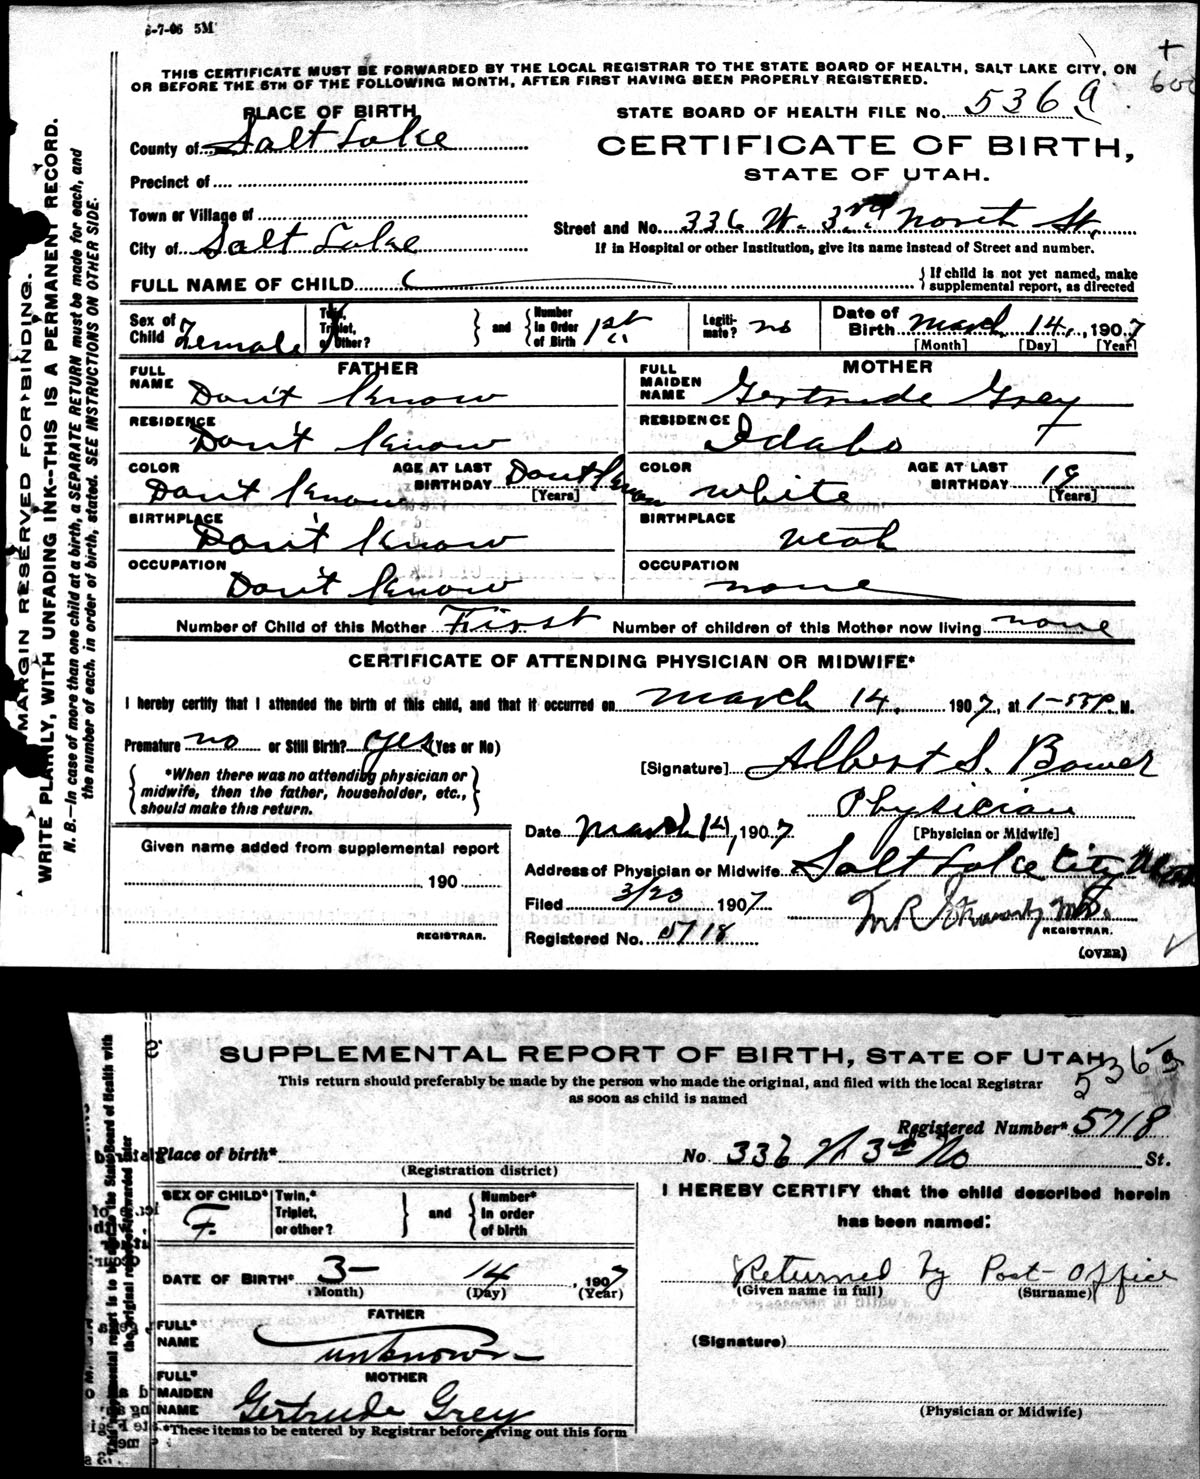 3-7-06 5M
THIS CERTIFICATE MUST BE FORWARDED BY THE LOCAL REGISTRAR TO THE STATE BOARD OF HEALTH, SALT LAKE CITY, ON
OR BEFORE THE 5TH OF THE FOLLOWING MONTH, AFTER FIRST HAVING BEEN PROPERLY REGISTERED.
PLACE OF BIRTH
STATE BOARD OF HEALTH FILE No. 5369
County of Salt Lake
CERTIFICATE OF BIRTH,
STATE OF UTAH.
Precinct of
Town or Village of
Street and No. 336 W. 3rd North St.
City of Salt Lake
If in Hospital or other Institution, give its name instead of Street and number.
FULL NAME OF CHILD
{ If child is not yet named, make
supplemental report, as directed
Sex of Child Female
Twin, Triplet, or Other? } and { Number In Order of Birth 1st
Legitimate? no
Date of Birth March 14, 1907
[Month] [Day] [Year]
FATHER
MOTHER
FULL NAME Don't Know
FULL MAIDEN NAME Gertrude Grey
RESIDENCE Don't Know
RESIDENCE Idaho
COLOR Don't Know AGE AT LAST BIRTHDAY Don't Know [Years]
COLOR White AGE AT LAST BIRTHDAY 19 [Years]
BIRTHPLACE Don't Know
BIRTHPLACE Utah
OCCUPATION Don't Know
OCCUPATION none
Number of Child of this Mother First Number of children of this Mother now living none
CERTIFICATE OF ATTENDING PHYSICIAN OR MIDWIFE*
I hereby certify that I attended the birth of this child, and that it occurred on March 14, 1907, at 1-55 P. M.
Premature no or Still Birth? yes (Yes or No)
[Signature] Albert S. Bower
{ *When there was no attending physician or
midwife, then the father, householder, etc.,
should make this return. }
Physician
[Physician or Midwife]
Date March 14, 1907
Given name added from supplemental report
Address of Physician or Midwife Salt Lake City Utah
190
Filed 3/20 1907
REGISTRAR.
REGISTRAR.
Registered No. 5718
(OVER)
MARGIN RESERVED FOR BINDING.
WRITE PLAINLY, WITH UNFADING INK--THIS IS A PERMANENT RECORD.
N. B.—In case of more than one child at a birth, a SEPARATE RETURN must be made for each, and
the number of each, in order of birth, stated. SEE INSTRUCTIONS ON OTHER SIDE.
SUPPLEMENTAL REPORT OF BIRTH, STATE OF UTAH
5369
This return should preferably be made by the person who made the original, and filed with the local Registrar
as soon as child is named
Registered Number* 5718
Place of birth* No. 336 W 3rd No St.
(Registration district)
SEX OF CHILD* F.
Twin,* Triplet, or other? } and { Number* In order of birth
I HEREBY CERTIFY that the child described herein
has been named:
DATE OF BIRTH* 3- 14 1907
(Month) (Day) (Year)
Returned by Post-Office
(Given name in full) (Surname)
FATHER
FULL* NAME unknown
(Signature)
MOTHER
FULL* MAIDEN NAME Gertrude Grey
(Physician or Midwife)
*These items to be entered by Registrar before giving out this form